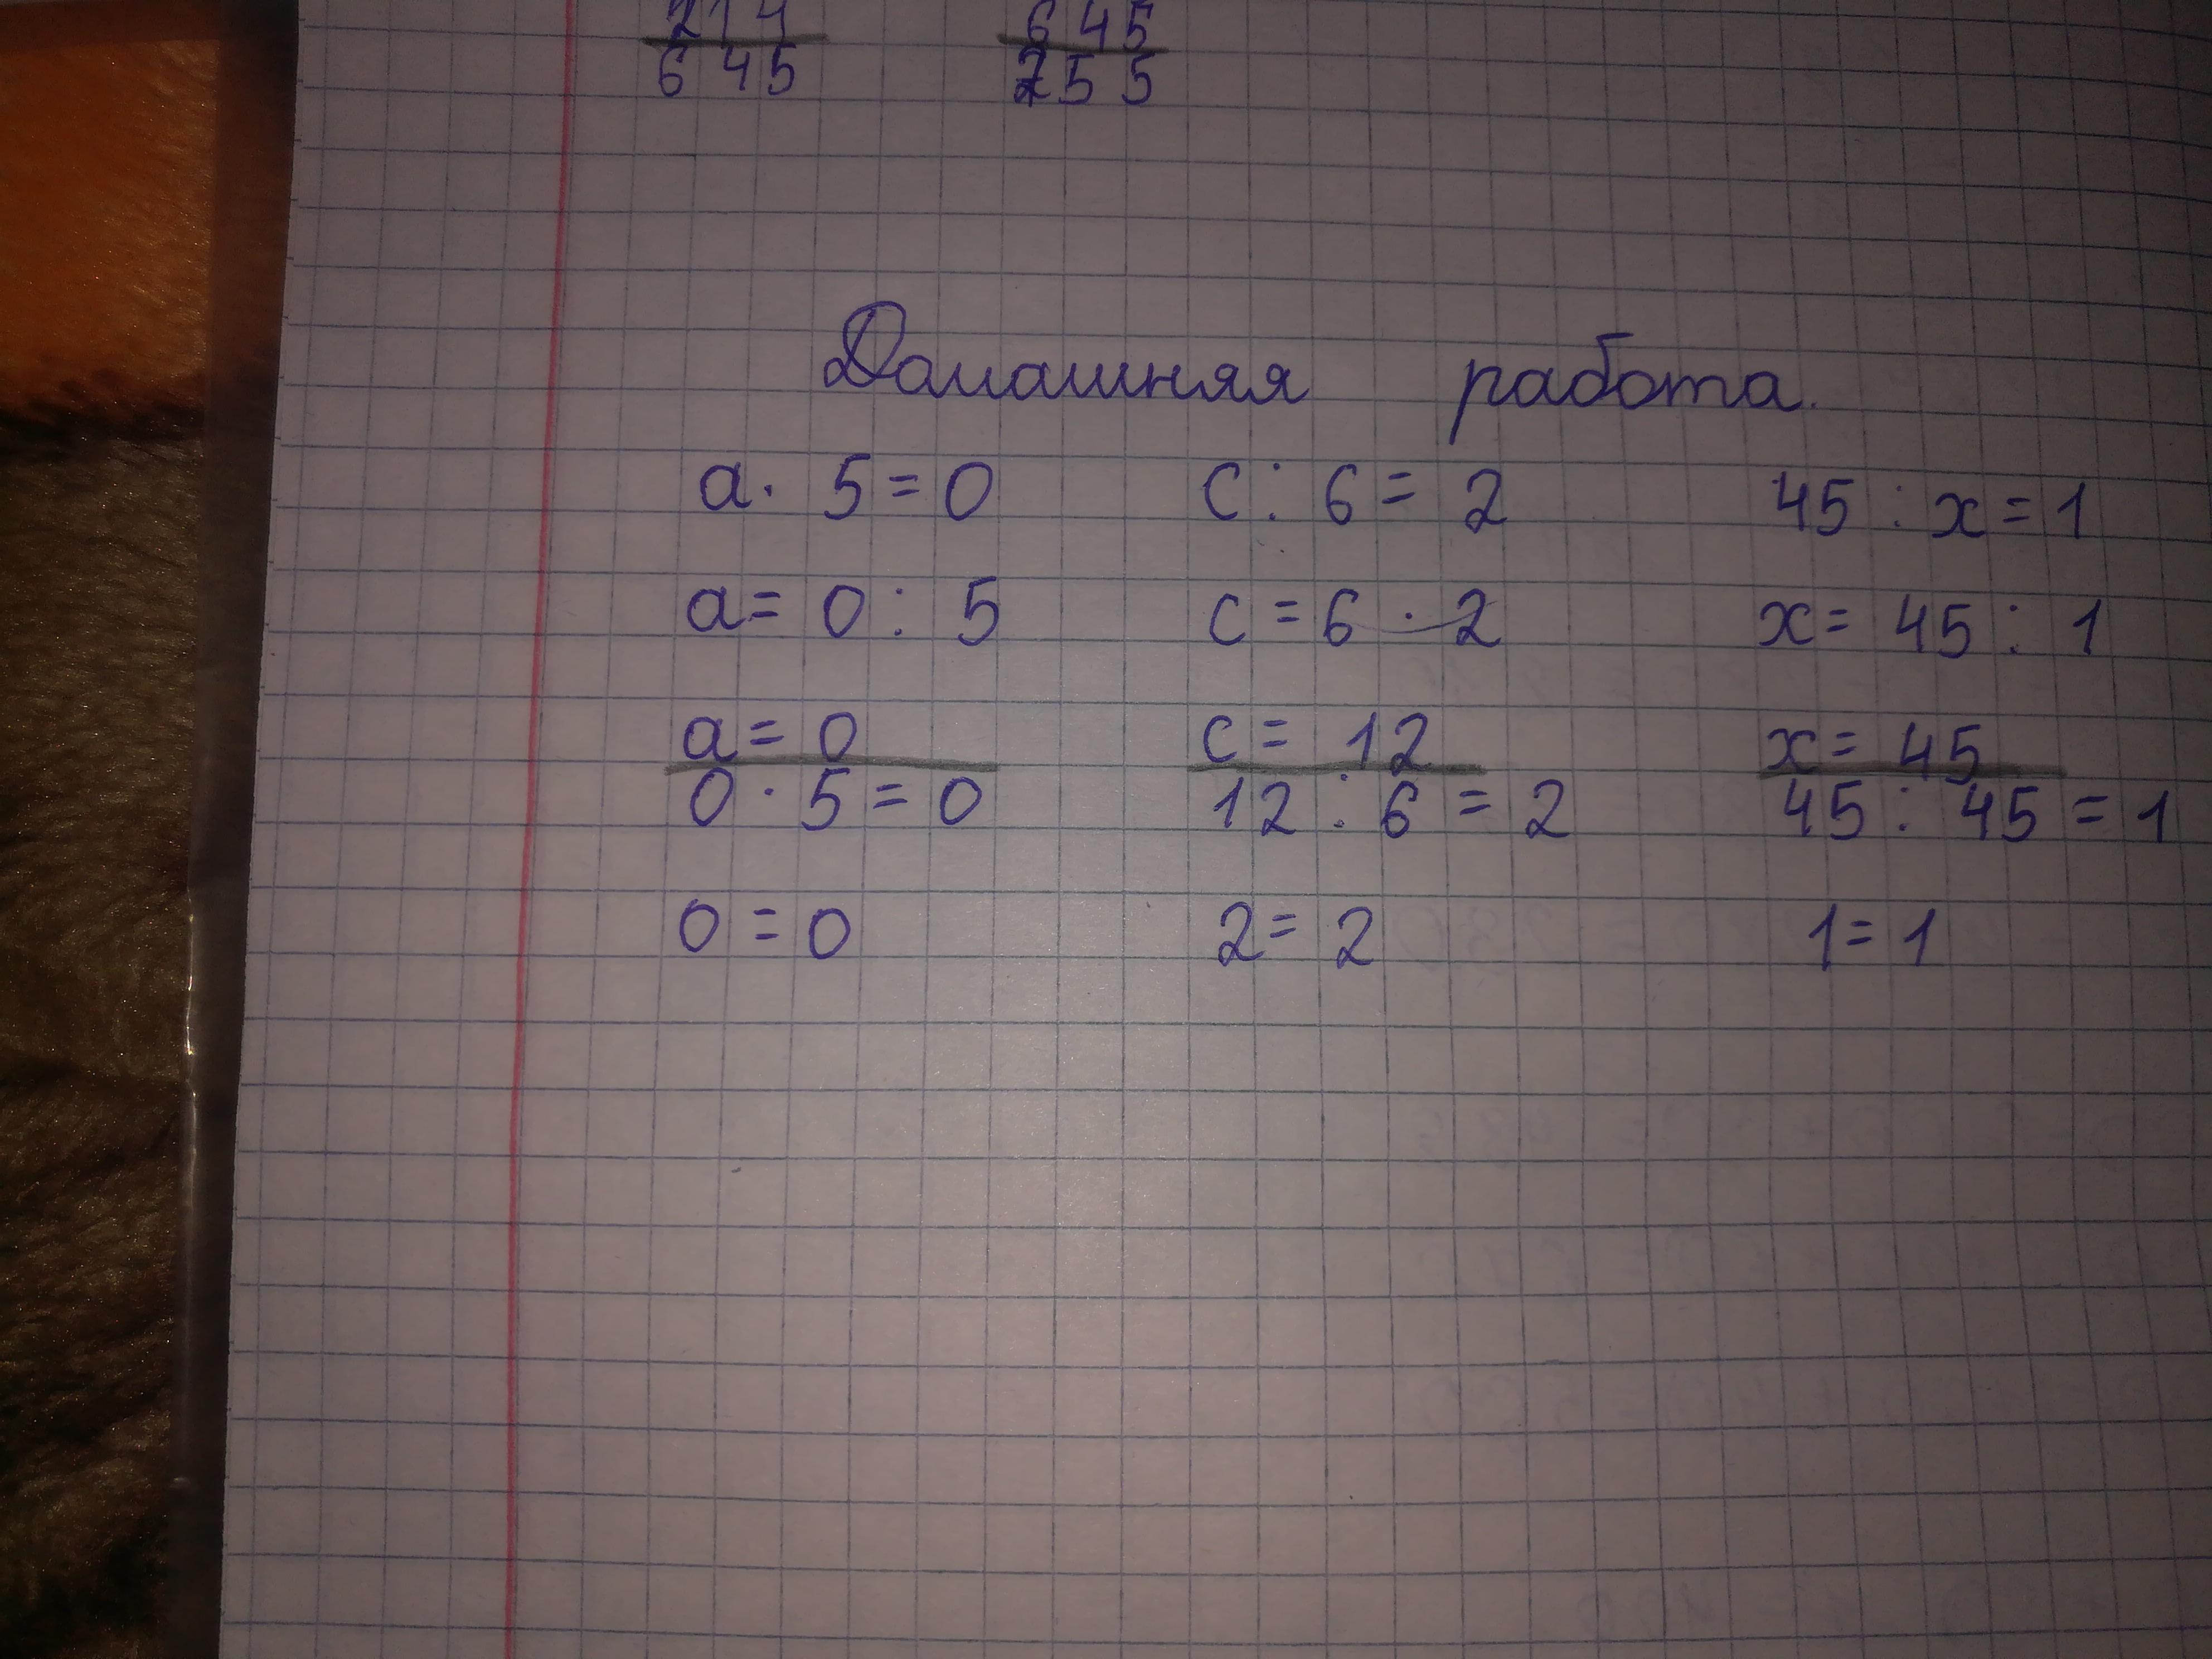 214 645
645 255
Домашняя работа.
a · 5 = 0 c : 6 = 2 45 : x = 1
a = 0 : 5 c = 6 · 2 x = 45 : 1
a = 0 c = 12 x = 45
0 · 5 = 0 12 : 6 = 2 45 : 45 = 1
0 = 0 2 = 2 1 = 1